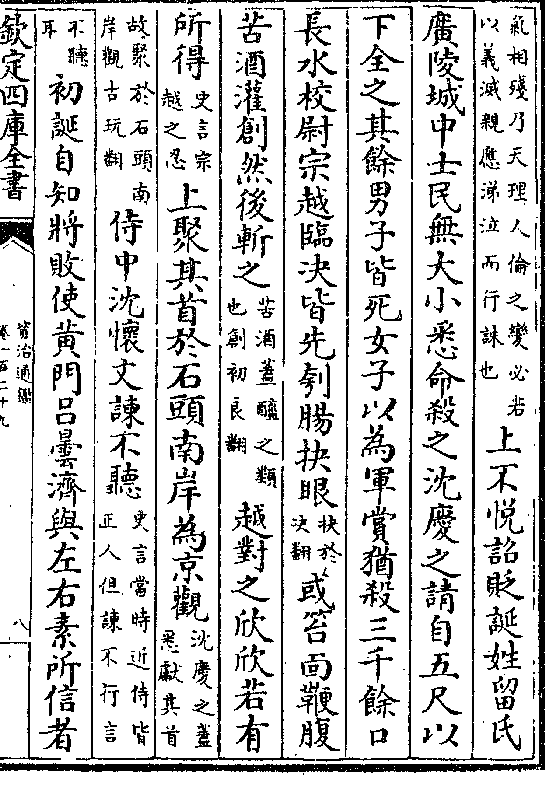 氣相殘乃天理人倫之變必若以義滅親應涕泣而行誅也上不悅詔貶誕姓留氏
廣陵城中士民無大小悉命殺之沈慶之請自五尺以
下全之其餘男子皆死女子以為軍賞猶殺三千餘口
長水校尉宗越臨決皆先刳腸抉眼抉於決翻或笞面鞭腹
苦酒灌創然後斬之苦酒蓋醯之類也創初良翻越對之欣欣若有
所得史言宗越之忍上聚其首於石頭南岸為京觀沈慶之蓋悉獻其首
故聚於石頭南岸觀古玩翻侍中沈懷文諫不聽史言當時近侍皆正人但諫不行言
不聽耳初誕自知將敗使黃門吕曇濟與左右素所信者
欽定四庫全書
資治通鑑
卷一百二十九
八